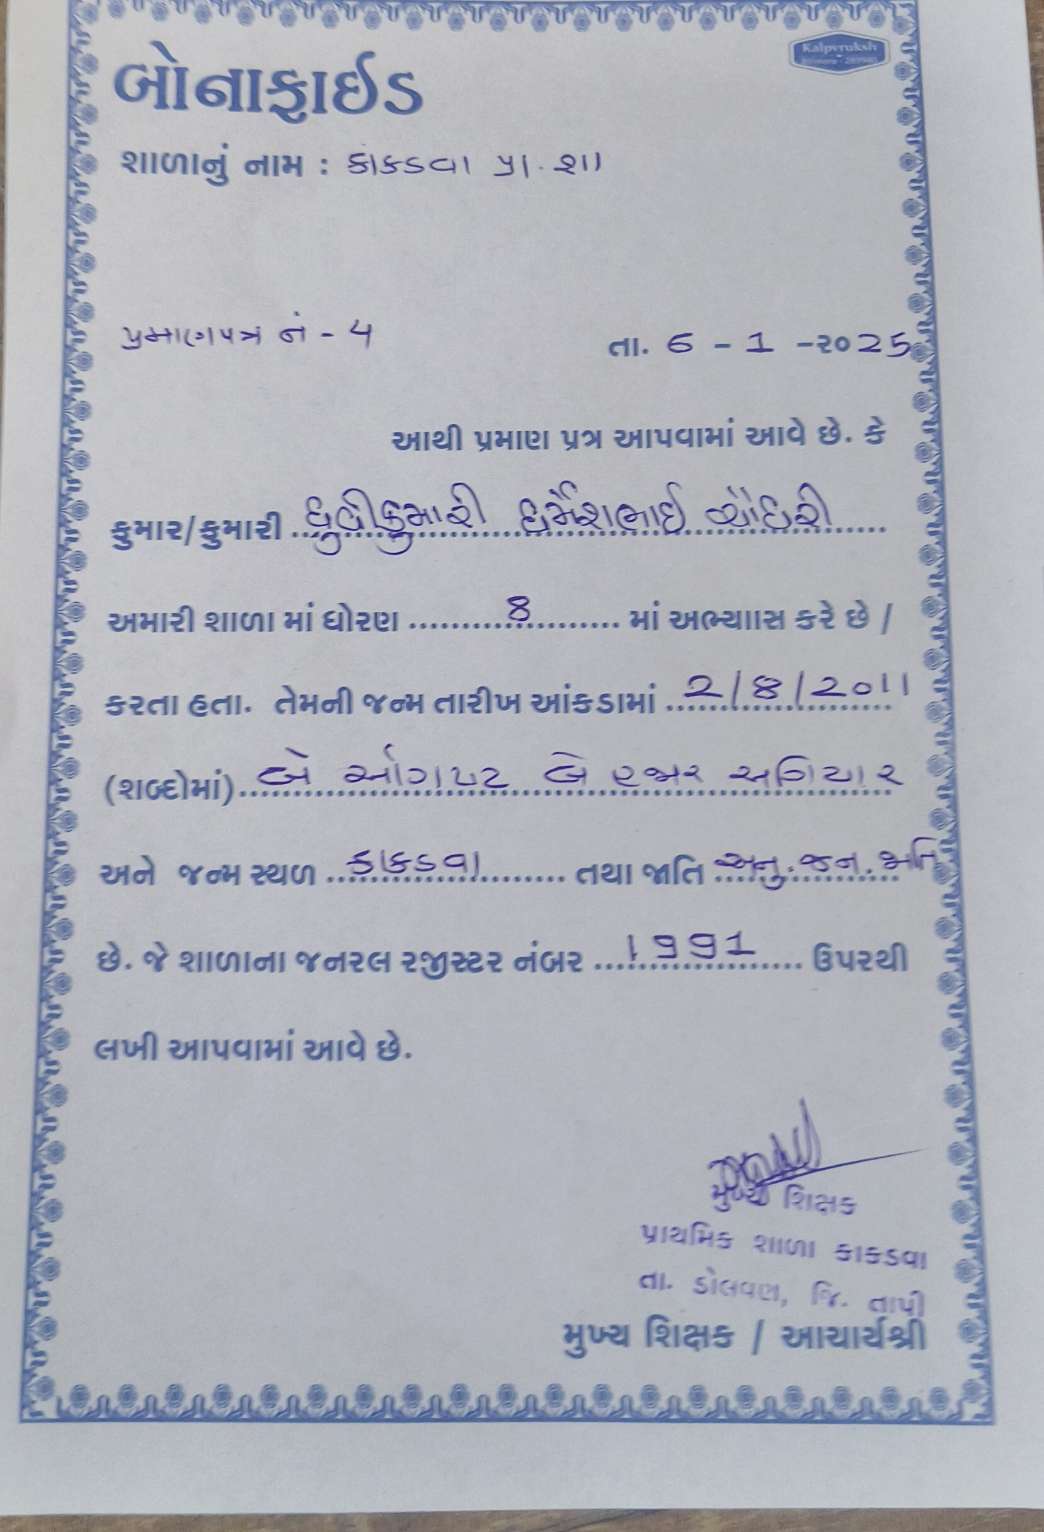 Kalpvruksh
બોનાફાઈડ
શાળાનું નામ : કાકડવા પ્રા. શા
પ્રમાણપત્ર નં - 4
તા. 6 - 1 -૨૦25
આથી પ્રમાણ પત્ર આપવામાં આવે છે. કે
કુમાર/કુમારી ધ્રુવીકુમારી ધર્મેશભાઈ ચૌધરી
અમારી શાળા માં ધોરણ ........8........ માં અભ્યાાસ કરે છે /
કરતા હતા. તેમની જન્મ તારીખ આંકડામાં 2/8/2011
(શબ્દોમાં) બે ઓગષ્ટ બે હજાર અગિયાર
અને જન્મ સ્થળ કાકડવા તથા જાતિ અનુ. જન. જાતિ
છે. જે શાળાના જનરલ રજીસ્ટર નંબર 1991 ઉપરથી
લખી આપવામાં આવે છે.
મુખ્ય શિક્ષક
પ્રાથમિક શાળા કાકડવા
તા. ડોલવણ, જિ. તાપી
મુખ્ય શિક્ષક / આચાર્યશ્રી